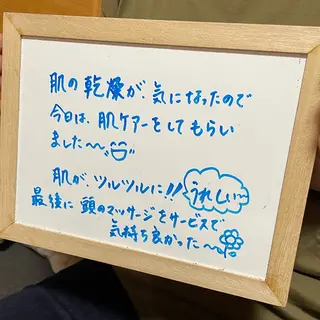 肌の乾燥が、気になったので
今日は、肌ケアーをしてもらい
ました〜〜
肌が、ツルツルに!!
うれしい〜
最後に 頭のマッサージをサービスで
気持ち良かった〜〜